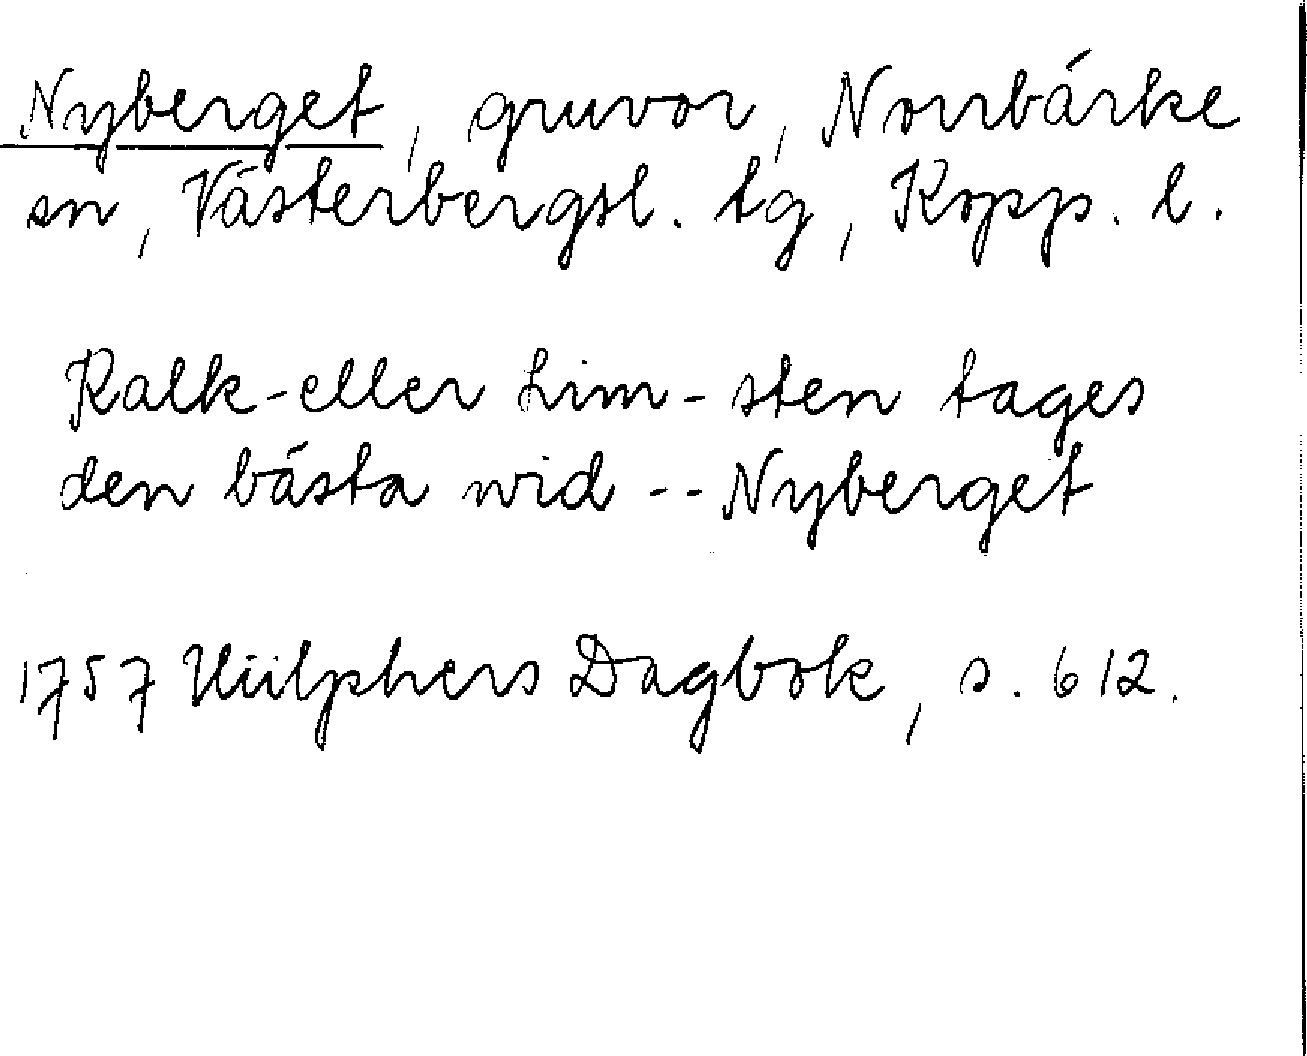 Nyberget, gruvor, Norrbärke
sn, Västerbergsl. tg, Kopp. l.
Kalk-eller Lim-sten tages
den bästa wid -- Nyberget
1757 Hülphers Dagbok, s. 612.